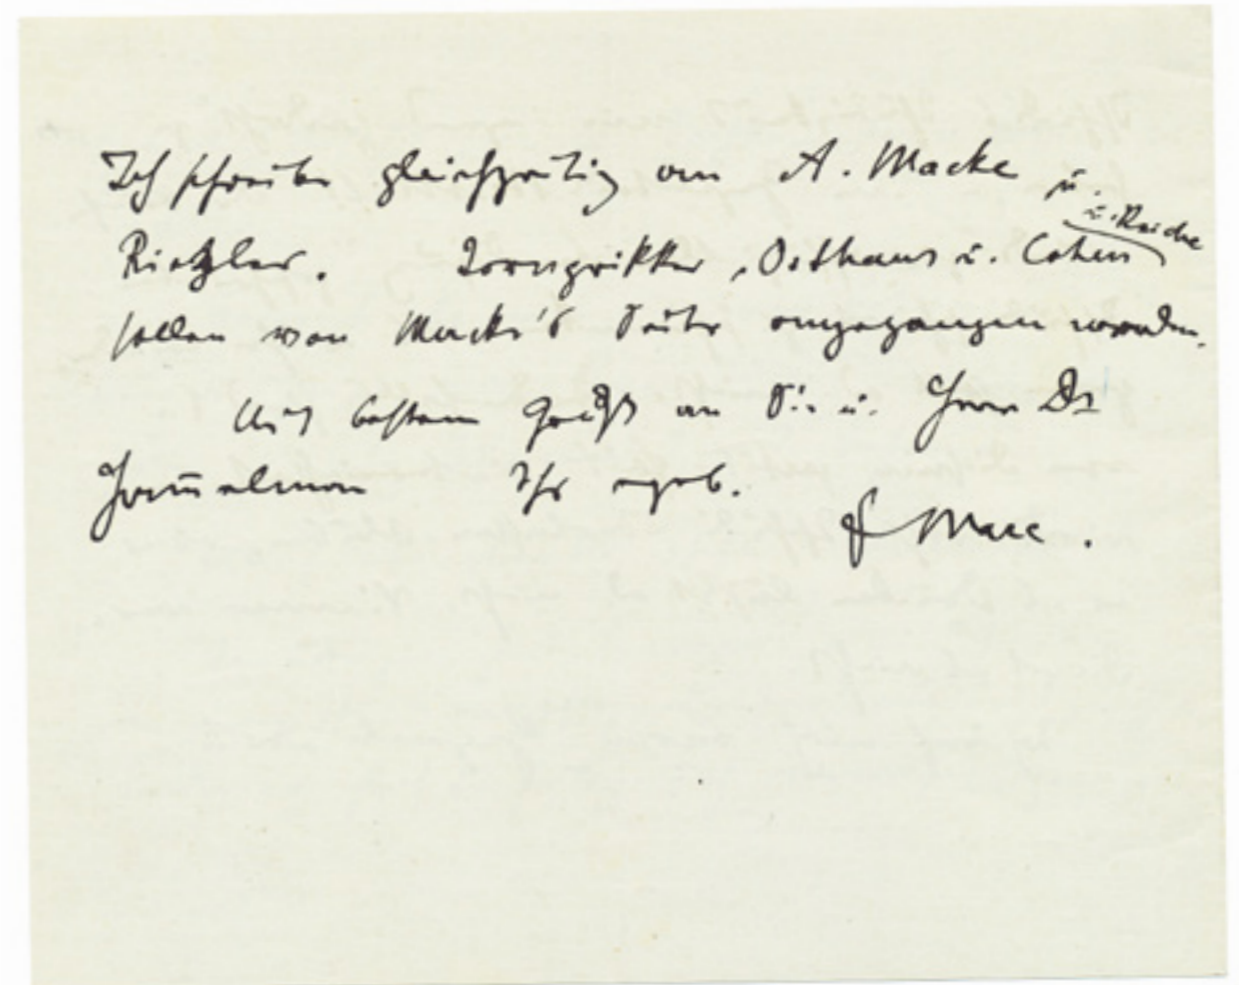 Ich schreibe gleichzeitig an A. Macke u.
u. Reiche
Riezler. Tornprikker, Osthaus u. Cohen
sollen von Macke's Seite angegangen werden.
Mit bestem Gruß an Sie u. Herrn Dr
Ihr ergeb.
F Marc.